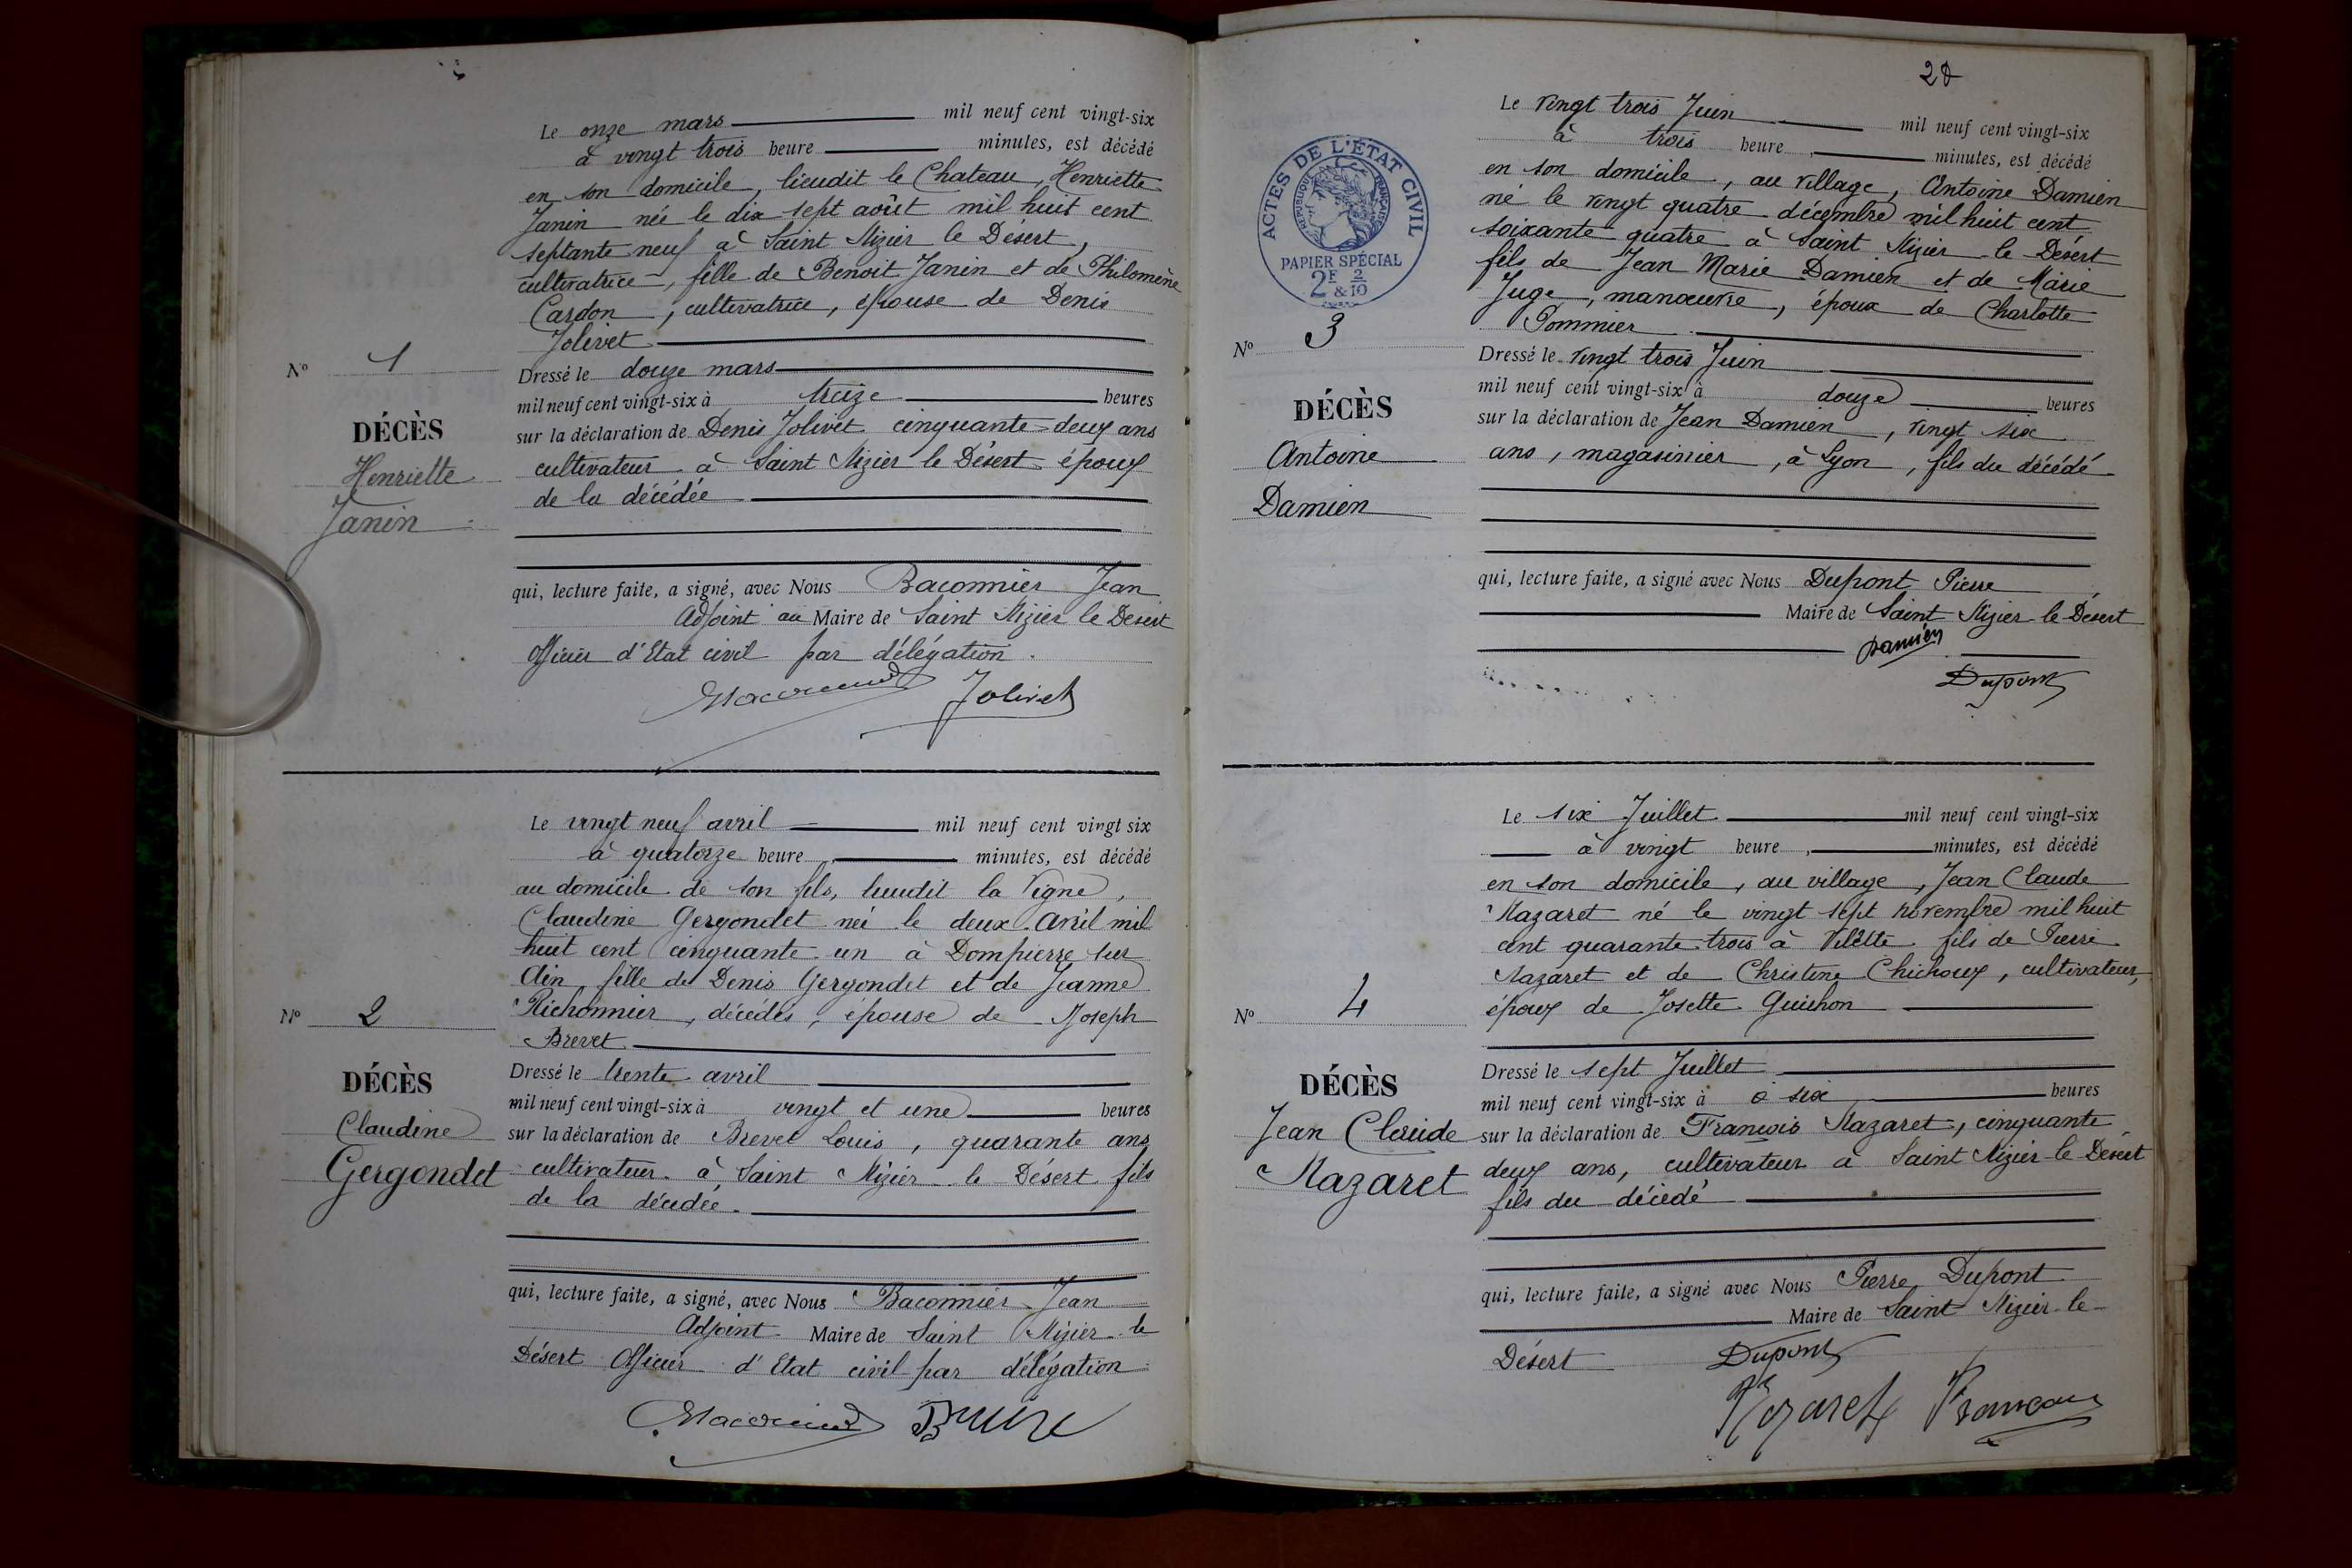 Le onze mars mil neuf cent vingt-six
à vingt trois heure minutes, est décédé
en son domicile, lieudit le Chateau, Henriette
Janin née le dix sept août mil huit cent
septante neuf à Saint Nizier le Desert,
cultivatrice, fille de Benoit Janin et de Philomène
Cardon, cultivatrice, épouse de Denis
Jolivet
Nº 1
Dressé le douze mars
mil neuf cent vingt-six à treize heures
DÉCÈS
Henriette
Janin
sur la déclaration de Denis Jolivet cinquante-deux ans
cultivateur à Saint Nizier le Désert époux
de la décédée
qui, lecture faite, a signé, avec Nous Baconnier Jean
Adjoint au Maire de Saint Nizier le Desert
Officier d'Etat civil par délégation.
Jolivet
Le vingt neuf avril mil neuf cent vingt six
à quatorze heure minutes, est décédé
au domicile de son fils, lieudit la Vigne,
Claudine Gergondet née le deux avril mil
huit cent cinquante un à Dompierre sur
Ain fille de Denis Gergondet et de Jeanne
Nº 2
Richonnier, décédés, épouse de Joseph
Brevet
DÉCÈS
Claudine
Gergondet
Dressé le trente avril
mil neuf cent vingt-six à vingt et une heures
sur la déclaration de Brevet Louis, quarante ans
cultivateur à Saint Nizier le Désert fils
de la décédée.
qui, lecture faite, a signé, avec Nous Baconnier Jean
Adjoint Maire de Saint Nizier le
Désert Officier d'Etat civil par délégation
28
ACTES DE L'ÉTAT CIVIL
RÉPUBLIQUE FRANÇAISE
PAPIER SPÉCIAL
2F & 2/10
Le vingt trois Juin mil neuf cent vingt-six
à trois heure minutes, est décédé
en son domicile, au village, Antoine Damien
né le vingt quatre décembre mil huit cent
soixante quatre à Saint Nizier le Désert
fils de Jean Marie Damien et de Marie
Juge, manœuvre, époux de Charlotte
Pommier
Nº 3
DÉCÈS
Antoine
Damien
Dressé le vingt trois Juin
mil neuf cent vingt-six à douze heures
sur la déclaration de Jean Damien, vingt six
ans, magasinier, à Lyon, fils du décédé
qui, lecture faite, a signé avec Nous Dupont Pierre
Maire de Saint Nizier-le-Désert
Damien
Dupont
Le six Juillet mil neuf cent vingt-six
à vingt heure minutes, est décédé
en son domicile, au village, Jean Claude
Nazaret né le vingt sept novembre mil huit
cent quarante trois à Vilette fils de Pierre
Nazaret et de Christine Chichoux, cultivateur,
époux de Josette Guichon
Nº 4
DÉCÈS
Jean Claude
Nazaret
Dressé le sept Juillet
mil neuf cent vingt-six à à six heures
sur la déclaration de François Nazaret, cinquante
deux ans, cultivateur à Saint Nizier-le-Désert
fils du décédé
qui, lecture faite, a signé avec Nous Pierre Dupont
Maire de Saint Nizier-le-
Désert
Dupont
Nazaret François